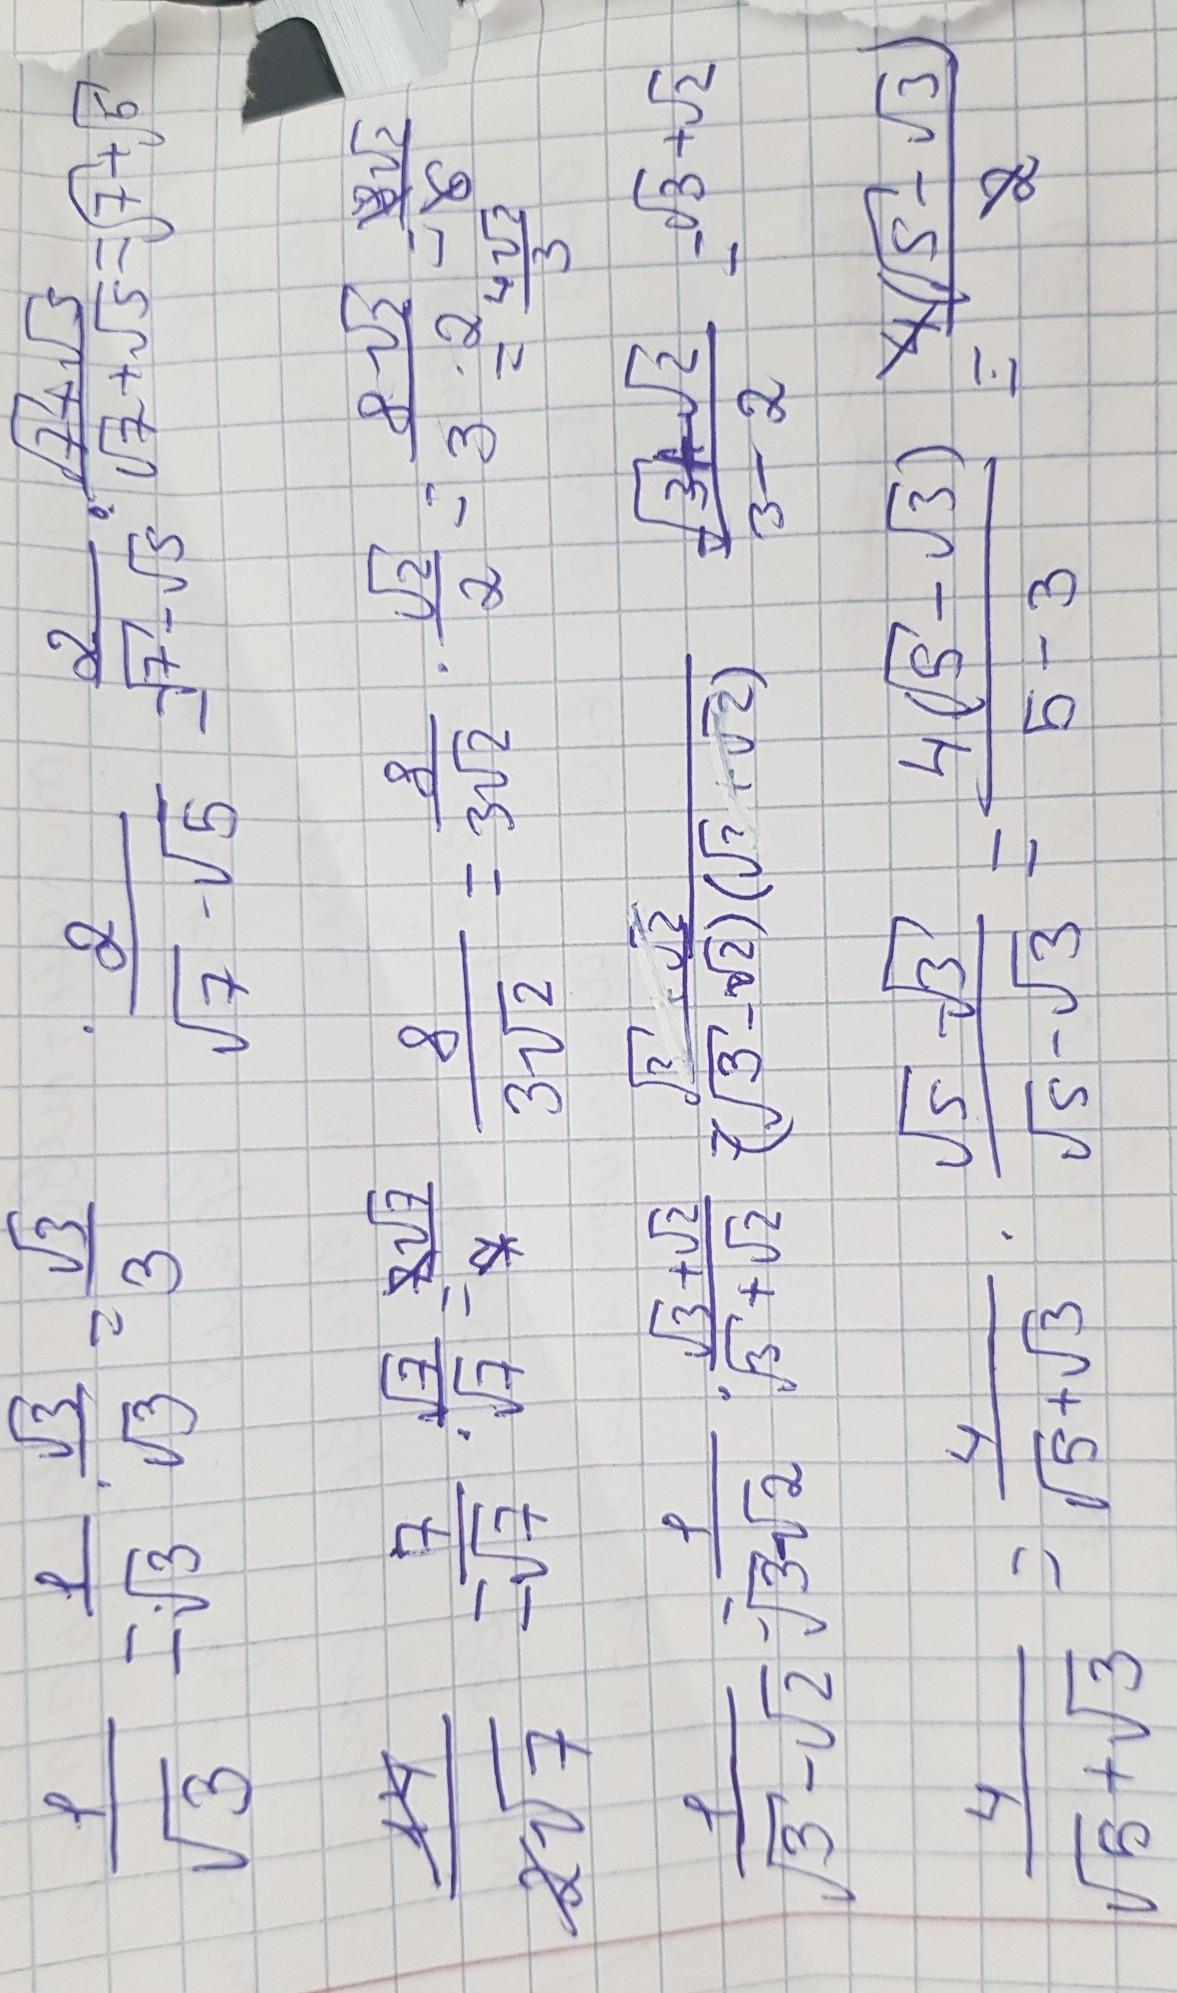 1/√3 = 1/√3 · √3/√3 = √3/3
2/(√7-√5) = 2/(√7-√5) · (√7+√5)/(√7+√5) = √7+√5
14/(2√7) = 7/√7 · √7/√7 = 7√7/7
8/(3√2) = 8/(3√2) · √2/2 = 8·√2/(3·2) = 8√2/6
= 4√2/3
1/(√3-√2) = 1/(√3-√2) · (√3+√2)/(√3+√2)
(√3-√2)(
(√3+√2)/(3-2) = √3+√2
4/(√5+√3) = 4/(√5+√3) · (√5-√3)/(√5-√3) = 4(√5-√3)/(5-3) = 4(√5-√3)/2